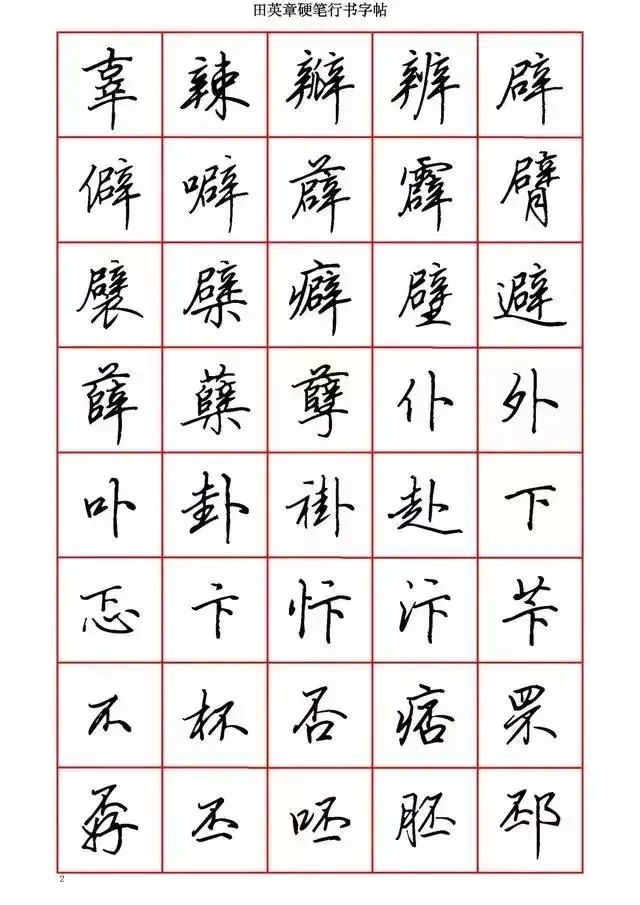 田英章硬笔行书字帖
辜辣瓣辨辟
僻噼薜霹臂
襞檗癖壁避
薛蘖孽仆外
卟卦褂赴下
忑卞忭汴苄
不杯否痞罘
孬丕呸胚邳
2